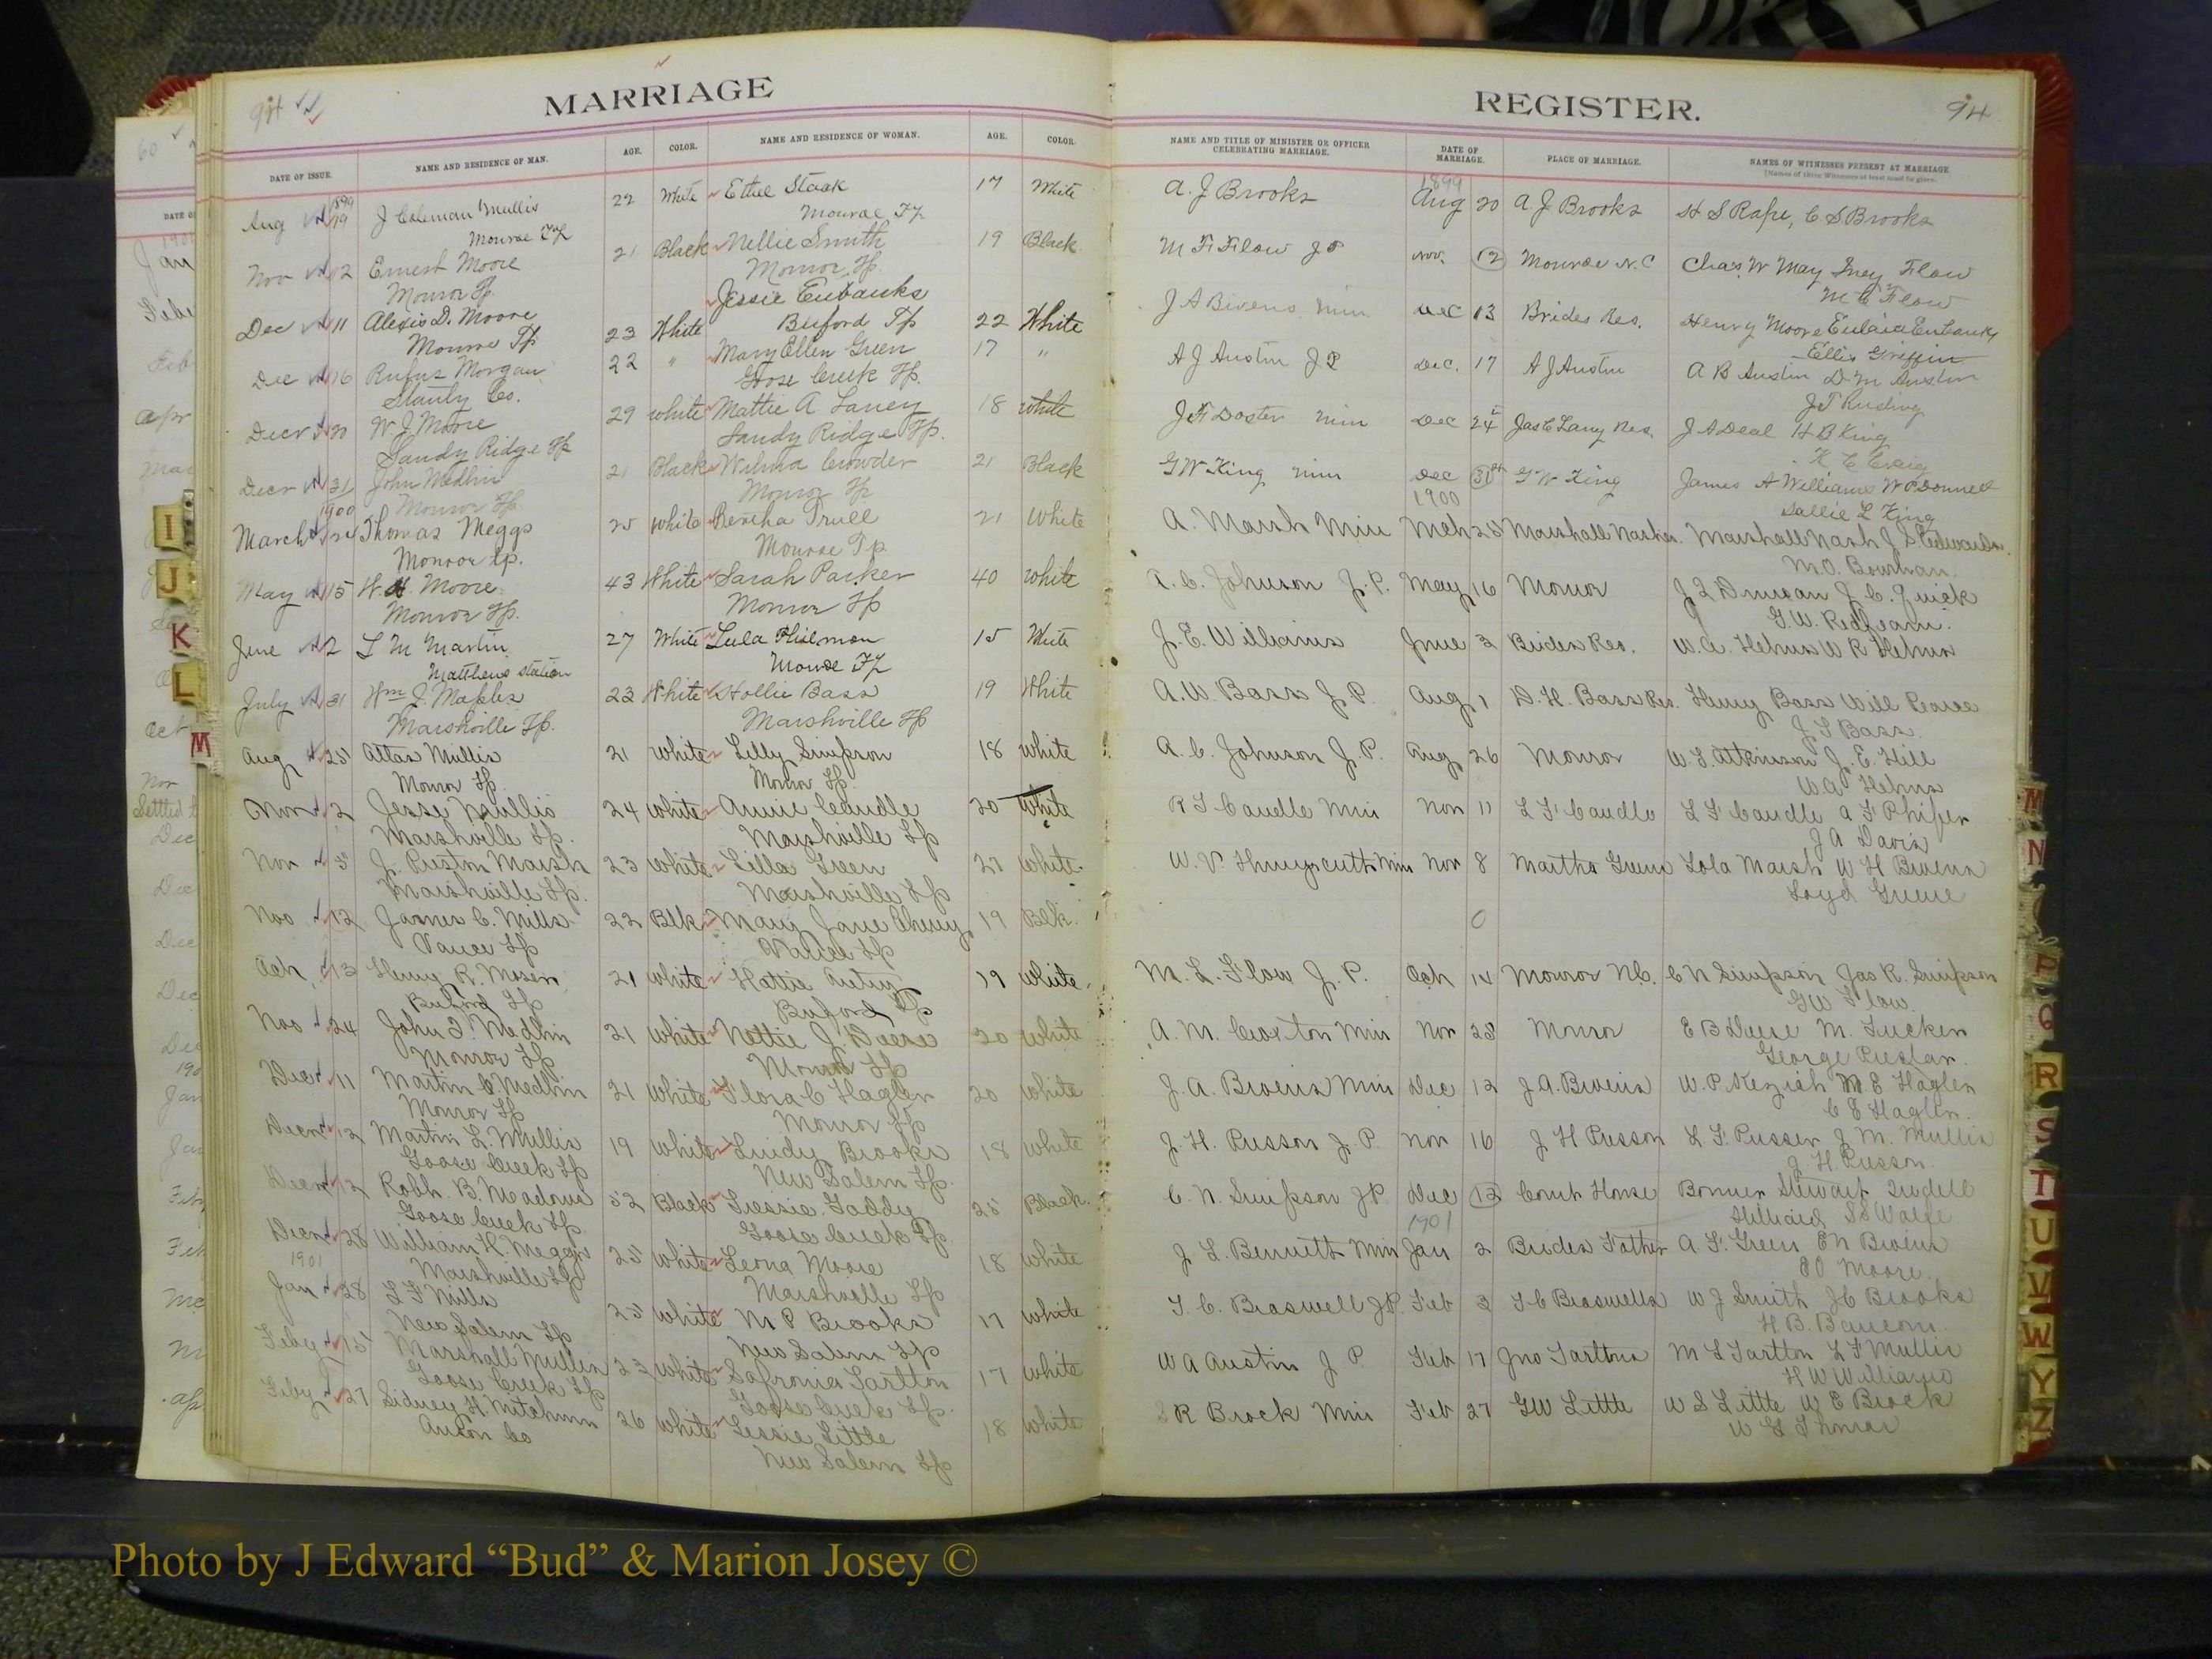 MARRIAGE REGISTER.
94 94
DATE OF ISSUE. NAME AND RESIDENCE OF MAN. AGE. COLOR. NAME AND RESIDENCE OF WOMAN. AGE. COLOR. NAME AND TITLE OF MINISTER OR OFFICER CELEBRATING MARRIAGE. DATE OF MARRIAGE. PLACE OF MARRIAGE. NAMES OF WITNESSES PRESENT AT MARRIAGE
[Names of three Witnesses at least must be given.
1899 1899
Aug 19 J Coleman Mullis 22 White Ethel Staak 17 White A. J Brooks Aug 20 A J Brooks H S Rape, C S Brooks
Monroe Tp Monroe Tp
Nov 12 Ernest Moore 21 Black Nellie Smith 19 Black M F Flow J P Nov. 12 Monroe N.C Chas. W May Flow
Monroe Tp. Monroe Tp. M C Flow
Dec 11 Alexis D. Moore 23 White Jessie Eubanks 22 White J A Bivens min Dec 13 Brides Res. Henry Moore Eulaia Eubanks
Monroe Tp Buford Tp Ellis Griffin
Dec 16 Rufus Morgan 22 " Mary Ellen Green 17 " A J Austin J P Dec. 17 A J Austin A B Austin D M Austin
Stanly Co. Goose Creek Tp.
Decr 20 W J Moore 29 white Mattie A Laney 18 white J F Doster min Dec 24 Jas C Lany Res. J A Deal H B King
Sandy Ridge Tp Sandy Ridge Tp. K C Craig
Decr 31 John Medlin 21 Black Wilma Crowder 21 Black G W King min Dec 31 G W King James A Williams W P Donnell
Monroe Tp Monroe Tp Sallie L King
1900 1900
March 24 Thomas Meggs 25 white Bertha Trull 21 White A. Marsh Min Mch 25 Marshall Nash Marshall Nash J S Edwards.
Monroe tp. Monroe Tp
May 15 W. H. Moore 43 White Sarah Parker 40 white A. C. Johnson J. P. May 16 Monroe J. C. Quick
Monroe Tp. Monroe Tp G. W. Redfearn.
June 2 L M Martin 27 White Lula Philemon 15 White J. E. Williams June 3 Brides Res. W. A. Helms W R Helms
Matthews Station Monroe Tp
July 31 Wm J. Maples 23 White Hollie Bass 19 White A. W. Bass J. P. Aug 1 D. H. Bass Res. Henry Bass Will Pearce
Marshville Tp. Marshville Tp J. T Bass.
Aug 25 Attas Mullis 21 white Lilly Simpson 18 white A. C. Johnson J. P. Aug 26 Monroe W. S. Atkinson J. E. Hill
Monroe Tp. Monroe Tp. W A Helms
Nov 2 Jesse Mullis 24 white Annie Caudle 20 White R T Caudle Min Nov 11 L F Caudle L F Caudle A F Phifer
Marshville Tp. Marshville Tp J A Davis
Nov 5 J. Preston Marsh 23 white Lilla Green 21 white. W. V. Hunycutt Min Nov 8 Martha Green Lola Marsh W H Bivens
Marshville Tp. Marshville Tp Loyd Green
Nov 12 James C. Mills 22 Blk Mary Jane 19 Blk. 0
Vance Tp Vance Tp
Oct 13 Henry R. Moser 21 white Hattie 19 White. M. L. Flow J. P. Oct 14 Monroe N.C. C N Simpson Jas R. Simpson
Buford Tp Buford Tp G W Flow.
Nov 24 John F. Medlin 21 white Nettie J. Deese 20 white A. M. Croxton Min Nov 28 Monroe E B Deese M. Tucker
Monroe Tp Monroe Tp George Presslar.
Decr 11 Martin C. Medlin 21 white Flora C Hagler 20 White J. A. Bivens Min Dec 12 J A. Bivens W. P. Keziah M E Hagler
Monroe Tp Monroe Tp C E Hagler.
Decr 12 Martin L. Mullis 19 white Lindy Brooks 18 White J. H. Pusson J. P. Nov 16 J H Pusson L. F. Pusser J M. Mullis
Goose Creek Tp New Salem Tp. J. H. Pusson.
Decr 12 Robt. B. Meadows 52 Black Tressie Gaddy 25 Black. C. N. Simpson J P. Dec 12 Court House Bonner Stewart
Goose Creek Tp. Goose Creek Tp. Hilliard
1901
Decr 28 William H. Meggs 25 white Leona Moore 18 white J. L. Bennett Min Jan 2 Brides Father A. F. Green E N Bivens
1901 Marshville Tp Marshville Tp Moore.
Jan 28 L F Mills 25 white M P Brooks 17 White T. C. Braswell J P. Feb 3 T C Braswells W J Smith J C Brooks
New Salem Tp New Salem Tp H B. Baucom
Feby 15 Marshall Mullis 23 White Safrona Tarlton 17 white W A Austin J P Feb 17 Jno Tarltons M L Tarlton L F Mullis
Goose Creek Tp Goose Creek Tp. H W Williams
Feby 27 Sidney H. Mitchum 26 white Lessie Little 18 White S R Brock Min Feb 27 G W Little W S Little W E Brock
Anson Co New Salem Tp W G Thomas
I
J
K
L
M
M
N
P
Q
R
S
T
U
V
W
Y
Z
Photo by J Edward “Bud” & Marion Josey ©